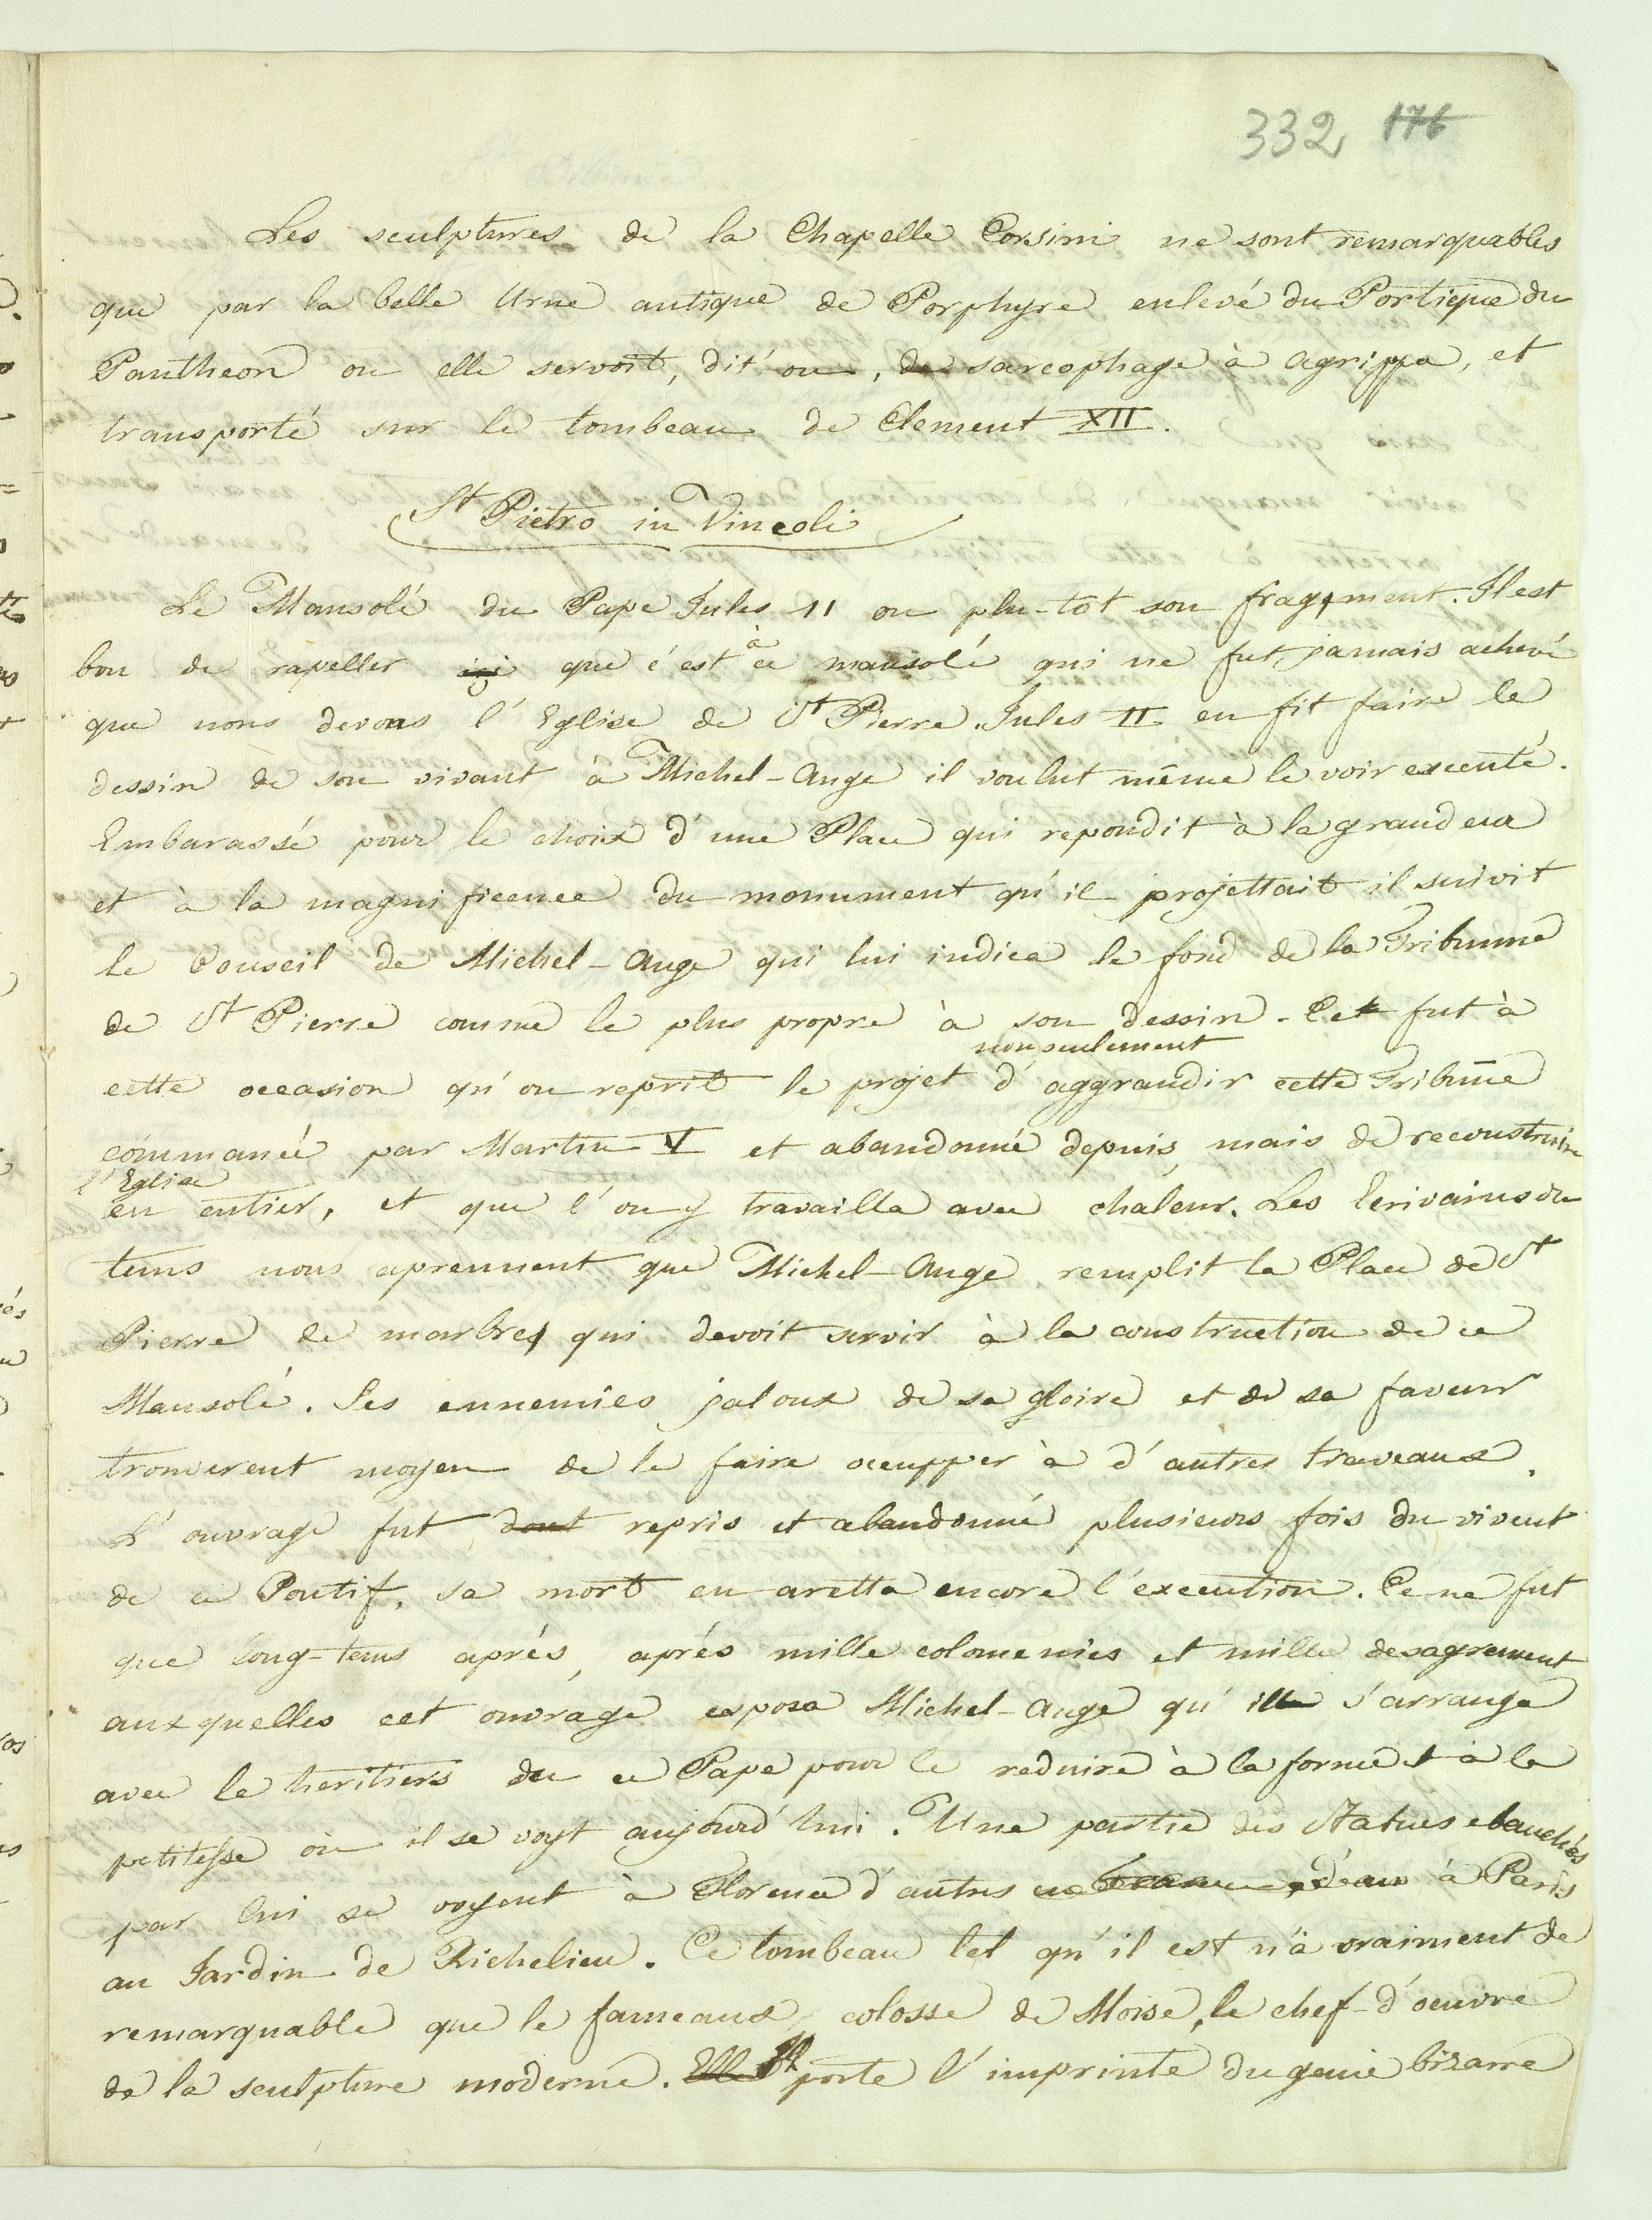 332 176
Les sculptures de la Chapelle Corsini ne sont remarquables
que par la belle Urne antique de Porphyre enlevé du Portique du
Pantheon ou elle servoit, dit'on, de sarcophage à Agrippa, et
transporté sur le tombeau de Clement XII.
St Pietro in Vincoli
Le Mausolé du Pape Jules II ou plu-tôt son fragment. Il est
bon de rapeller ici que c'est à ce mausolé qui ne fut jamais achevé
que nous devons l'Eglise de St Pierre. Jules II en fit faire le
dessin de son vivant à Michel-Ange il voulut même le voir executé.
Embarassé pour le choix d'une Place qui repondit à la grandeur
et à la magnificence du monument qu'il projettait il suivit
le Conseil de Michel-Ange qui lui indica le fond de la Tribunne
de St Pierre comme le plus propre à son dessin. Cet fut à
nonseulement
cette occasion qu'on reprit le projet d'aggrandir cette Tribune
commancé par Martin V et abandonné depuis, mais de reconstruire
l'Eglise
en entier, et que l'on y travailla avec chaleur. Les Ecrivains du
tems nous aprennent que Michel-Ange remplit la Place de St
Pierre de marbres qui devoit servir à la construction de ce
Mausolé. Ses ennemies jaloux de sa gloire et de sa faveur
trouverent moyen de le faire occupper à d'autres traveaux.
L'ouvrage fut dont repris et abandonné plusieurs fois du vivent
de ce Pontif, sa mort en aretta encore l'execution. Ce ne fut
que long-tems aprés, aprés mille colomenies et mille desagrement
auxquelles cet ouvrage exposa Michel-Ange qu'il s'arrangea
avec le heritiers du ce Pape pour le reduire à la forme et à la
petitesse où il se voyt aujourd'hui. Une partie des Statues ebauchés
par lui se voyent à Florence d'autres à Paris
au Jardin de Richelieu. Ce tombeau tel qu'il est n'à vraiment de
remarquable que le fameaux colosse de Moise, le chef-d'oeuvre
de la sculpture moderne. Elle Il porte l'imprinte du genie bizarre